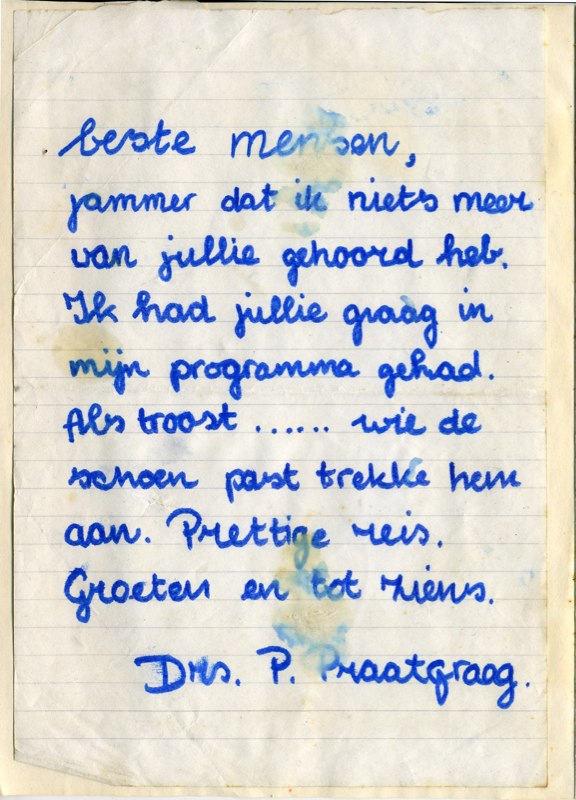 beste mensen,
jammer dat ik niets meer
van jullie gehoord heb.
Ik had jullie graag in
mijn programma gehad.
Als troost ...... wie de
schoen past trekke hem
aan. Prettige reis.
Groeten en tot ziens.
Drs. P. Praatgraag.